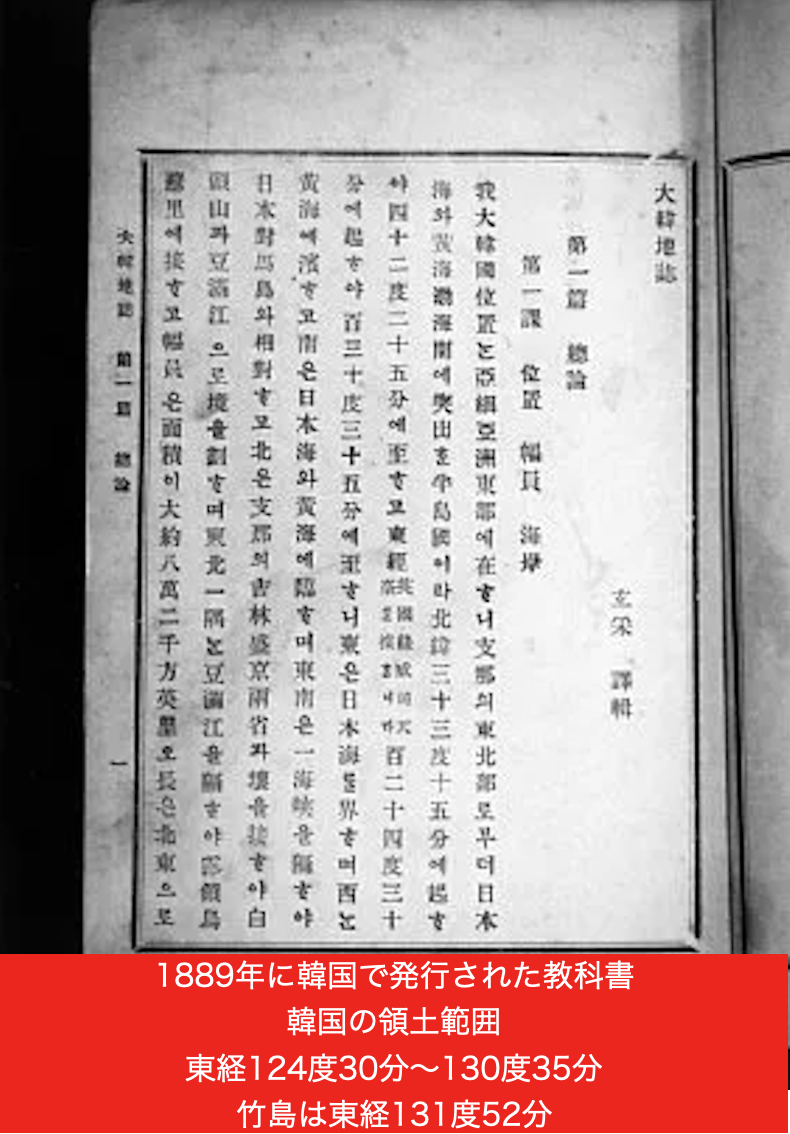 大韓地誌
玄采 譯輯
第一篇 總論
第一課 位置 幅員 海岸
我大韓國位置는亞細亞洲東部에在ᄒᆞ니支那의東北部로부더日本
海와黃海渤海間에突出ᄒᆞᆫ半島國이라北緯三十三度十五分에起ᄒᆞ
야四十二度二十五分에至ᄒᆞ고東經百二十四度三十
分에起ᄒᆞ야百三十度三十五分에至ᄒᆞ니東은日本海를界ᄒᆞ며西는
黃海에濱ᄒᆞ고南은日本海와黃海에臨ᄒᆞ며東南은一海峽을隔ᄒᆞ야
日本對馬島와相對ᄒᆞ고北은支那의吉林盛京兩省과壤을接ᄒᆞ야白
頭山과豆滿江으로境을劃ᄒᆞ며東北一隅는豆滿江을隔ᄒᆞ야露領烏
蘇里에接ᄒᆞ고幅員은面積이大約八萬二千方英里오長은北東으로
大韓地誌 第一篇 總論
一
1889年に韓国で発行された教科書
韓国の領土範囲
東経124度30分〜130度35分
竹島は東経131度52分